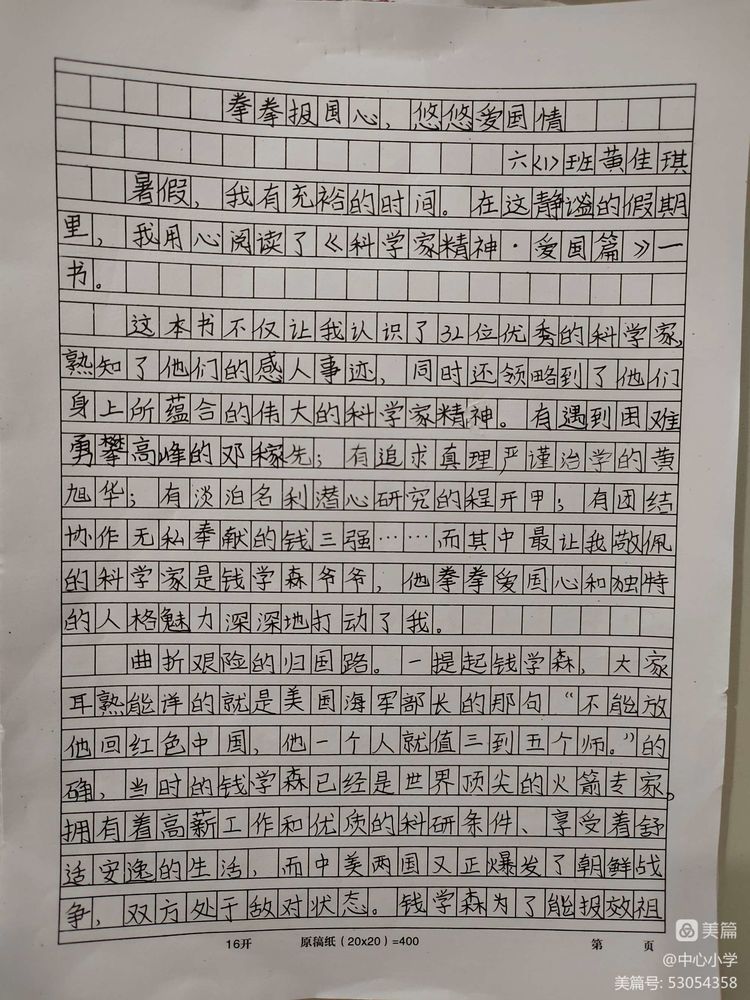 拳拳报国心，悠悠爱国情
六<1>班黄佳琪
暑假，我有充裕的时间。在这静谧的假期
里，我用心阅读了《科学家精神·爱国篇》一
书。
这本书不仅让我认识了32位优秀的科学家，
熟知了他们的感人事迹，同时还领略到了他们
身上所蕴含的伟大的科学家精神。有遇到困难
勇攀高峰的邓稼先；有追求真理严谨治学的黄
旭华；有淡泊名利潜心研究的程开甲；有团结
协作无私奉献的钱三强……而其中最让我敬佩
的科学家是钱学森爷爷，他拳拳爱国心和独特
的人格魅力深深地打动了我。
曲折艰险的归国路。一提起钱学森，大家
耳熟能详的就是美国海军部长的那句“不能放
他回红色中国，他一个人就值三到五个师。”的
确，当时的钱学森已经是世界顶尖的火箭专家。
拥有着高薪工作和优质的科研条件、享受着舒
适安逸的生活，而中美两国又正爆发了朝鲜战
争，双方处于敌对状态。钱学森为了能报效祖
16开 原稿纸（20x20）=400 第 页
美篇
@中心小学
美篇号: 53054358